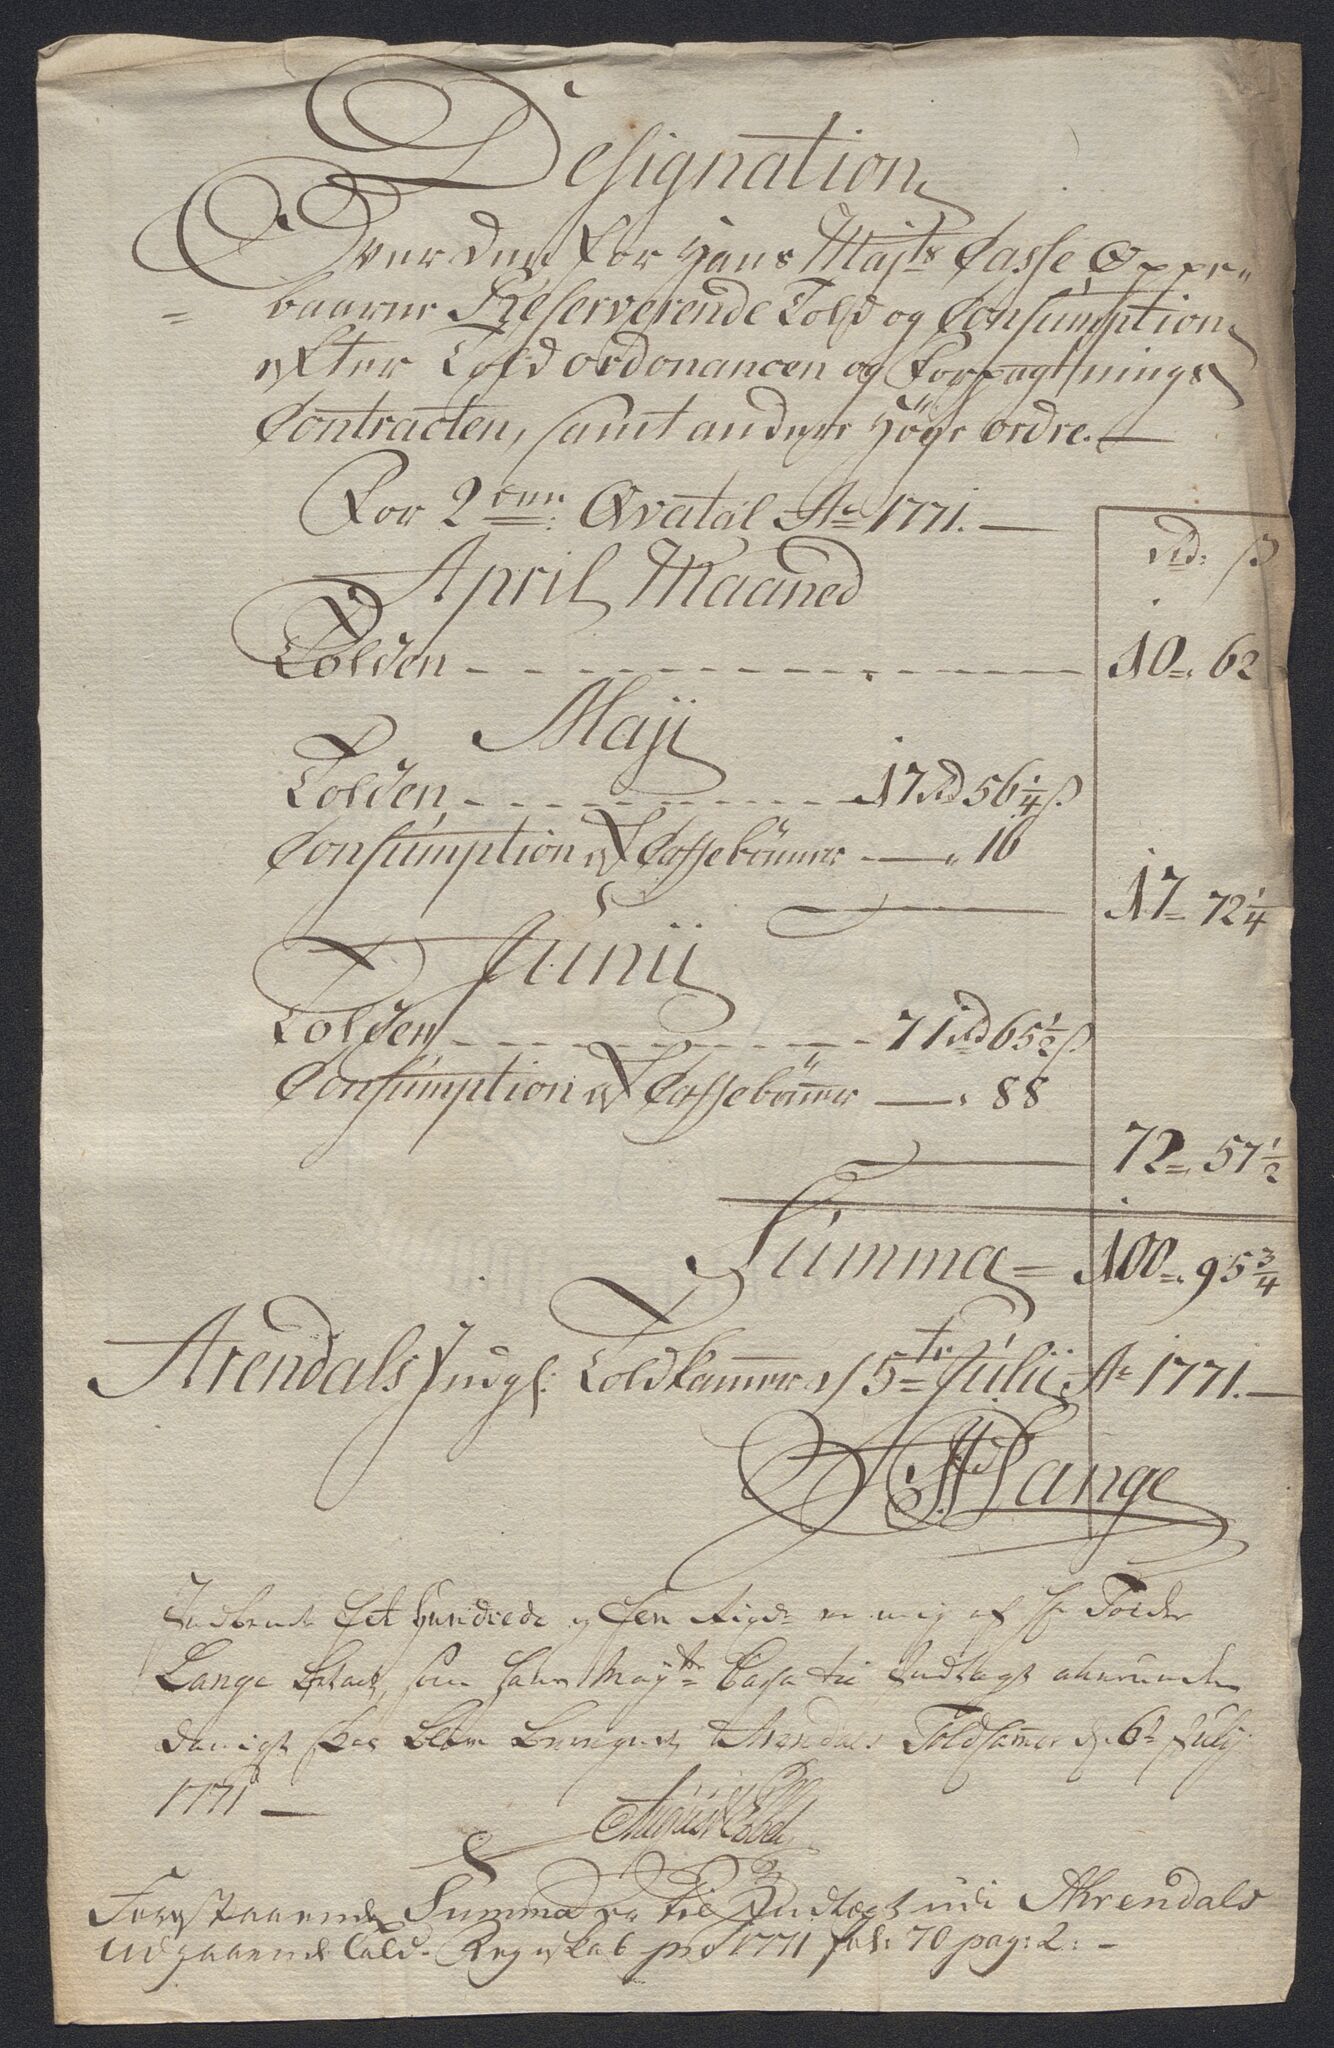 Designation
Over den for Hans Majts Casse Oppe-
= baarne Reserverende Told og Consumption
efter Told ordonancen og Forpagtnings
Contracten, samt andere høye ordre.
For 2den: Qvatal Ao 1771.
rd: ß
April Maaned
Tolden - - - 10 „ 62
Maji
Tolden - - - 17 rd 56 1/4 ß
Consumption af Caffebönner — „ 16
17 „ 72 1/4
Junii
Tolden - - - 71 rd 65 1/2 ß
Consumption af Caffebönner — „ 88
72 „ 57 1/2
Summa = 100 „ 95 3/4
Arendals Indg: Toldkammer d 5te Julii Ao 1771.
Lange
Et Hundrede og Een Rigdr er mig af Hr Tolder
Lange betalt, som Hans Mayts Cassa til Indtægt
Arendals Toldkammer d. 6te July
1771
August
Forestaaende Summa er til Indtægt udi Ahrendals
Udgaaende Told-Regnskab pro 1771 fol: 70 pag: 2: